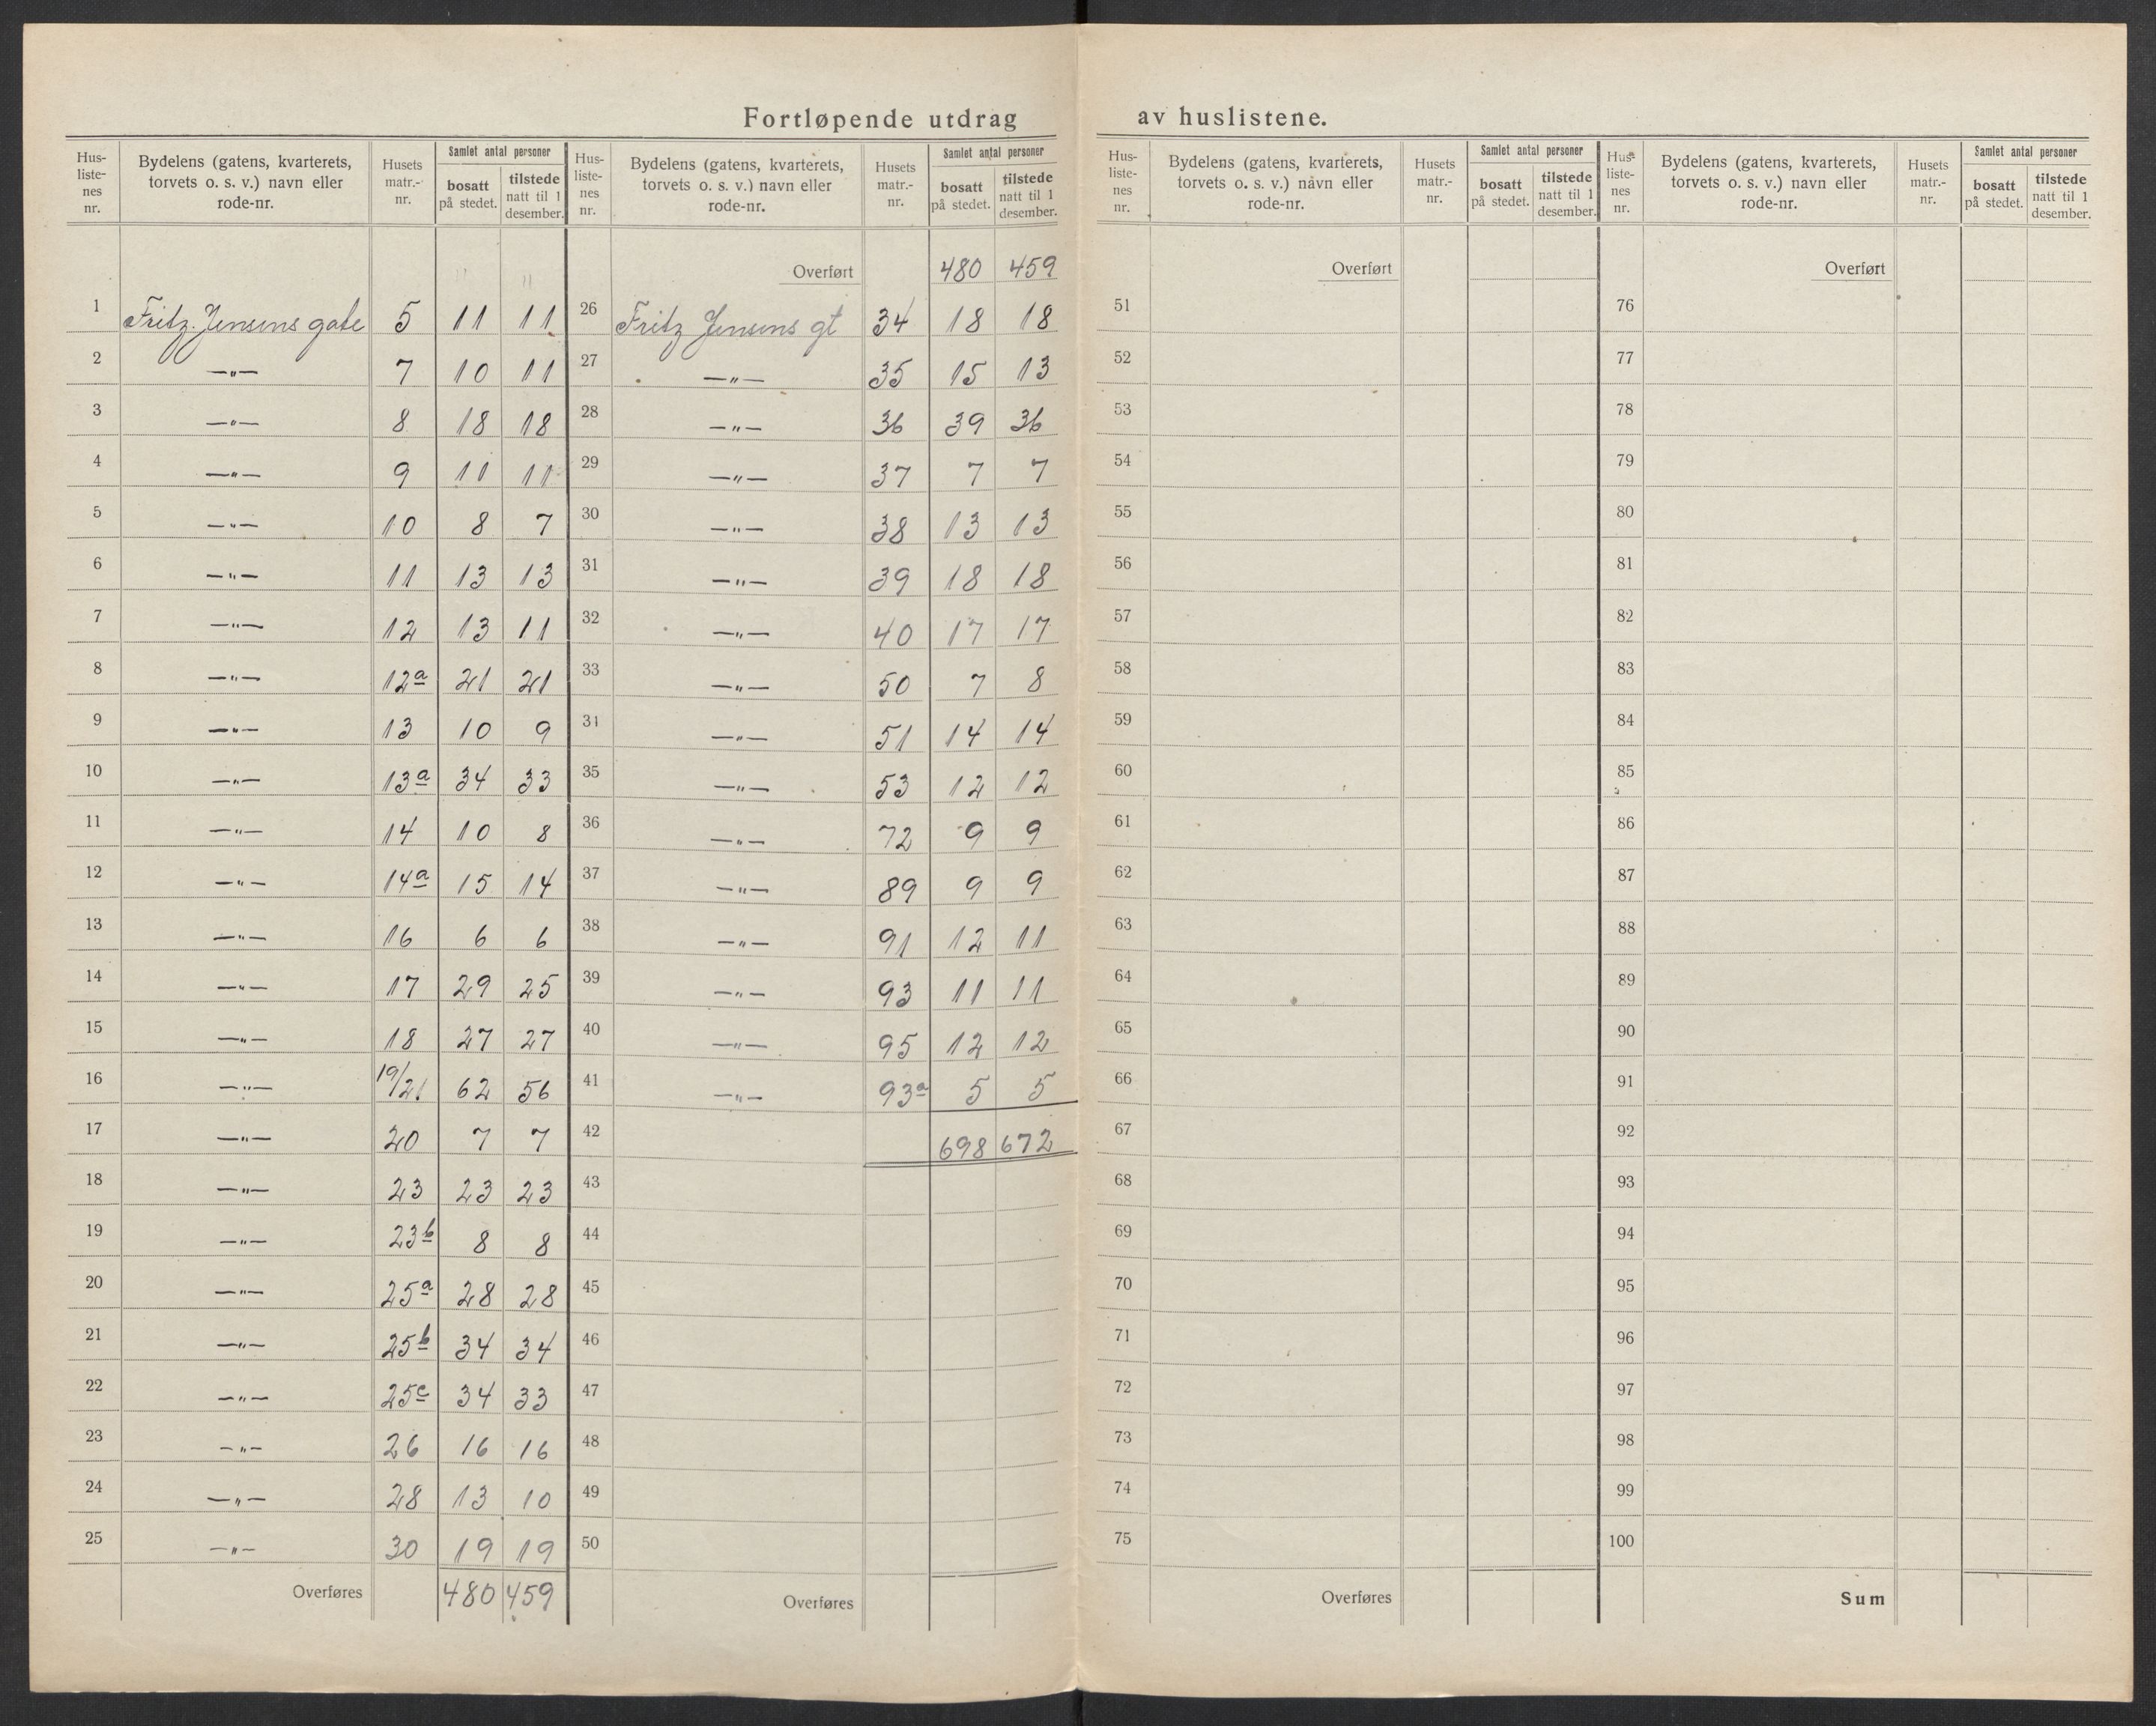 Fortløpende utdrag av huslistene.
Hus-listenes nr. | Bydelens (gatens, kvarterets, torvets o. s. v.) navn eller rode-nr. | Husets matr.-nr. | Samlet antal personer bosatt på stedet. | tilstede natt til 1 desember.
" "
1 Fritz Jensens gate 5 11 11
2 —"— 7 10 11
3 —"— 8 18 18
4 —"— 9 11 11
5 —"— 10 8 7
6 —"— 11 13 13
7 —"— 12 13 11
8 —"— 12a 21 21
9 —"— 13 10 9
10 —"— 13a 34 33
11 —"— 14 10 8
12 —"— 14a 15 14
13 —"— 16 6 6
14 —"— 17 29 25
15 —"— 18 27 27
16 —"— 19/21 62 56
17 —"— 20 7 7
18 —"— 23 23 23
19 —"— 23b 8 8
20 —"— 25a 28 28
21 —"— 25b 34 34
22 —"— 25c 34 33
23 —"— 26 16 16
24 —"— 28 13 10
25 —"— 30 19 19
Overføres 480 459
Hus-listenes nr. | Bydelens (gatens, kvarterets, torvets o. s. v.) navn eller rode-nr. | Husets matr.-nr. | Samlet antal personer bosatt på stedet. | tilstede natt til 1 desember.
Overført 480 459
26 Fritz Jensens gt 34 18 18
27 —"— 35 15 13
28 —"— 36 39 36
29 —"— 37 7 7
30 —"— 38 13 13
31 —"— 39 18 18
32 —"— 40 17 17
33 —"— 50 7 8
31 —"— 51 14 14
35 —"— 53 12 12
36 —"— 72 9 9
37 —"— 89 9 9
38 —"— 91 12 11
39 —"— 93 11 11
40 —"— 95 12 12
41 —"— 93a 5 5
42 698 672
43
44
45
46
47
48
49
50
Overføres
Hus-listenes nr. | Bydelens (gatens, kvarterets, torvets o. s. v.) navn eller rode-nr. | Husets matr.-nr. | Samlet antal personer bosatt på stedet. | tilstede natt til 1 desember.
Overført
51
52
53
54
55
56
57
58
59
60
61
62
63
64
65
66
67
68
69
70
71
72
73
74
75
Overføres
Hus-listenes nr. | Bydelens (gatens, kvarterets, torvets o. s. v.) navn eller rode-nr. | Husets matr.-nr. | Samlet antal personer bosatt på stedet. | tilstede natt til 1 desember.
Overført
76
77
78
79
80
81
82
83
84
85
86
87
88
89
90
91
92
93
94
95
96
97
98
99
100
Sum